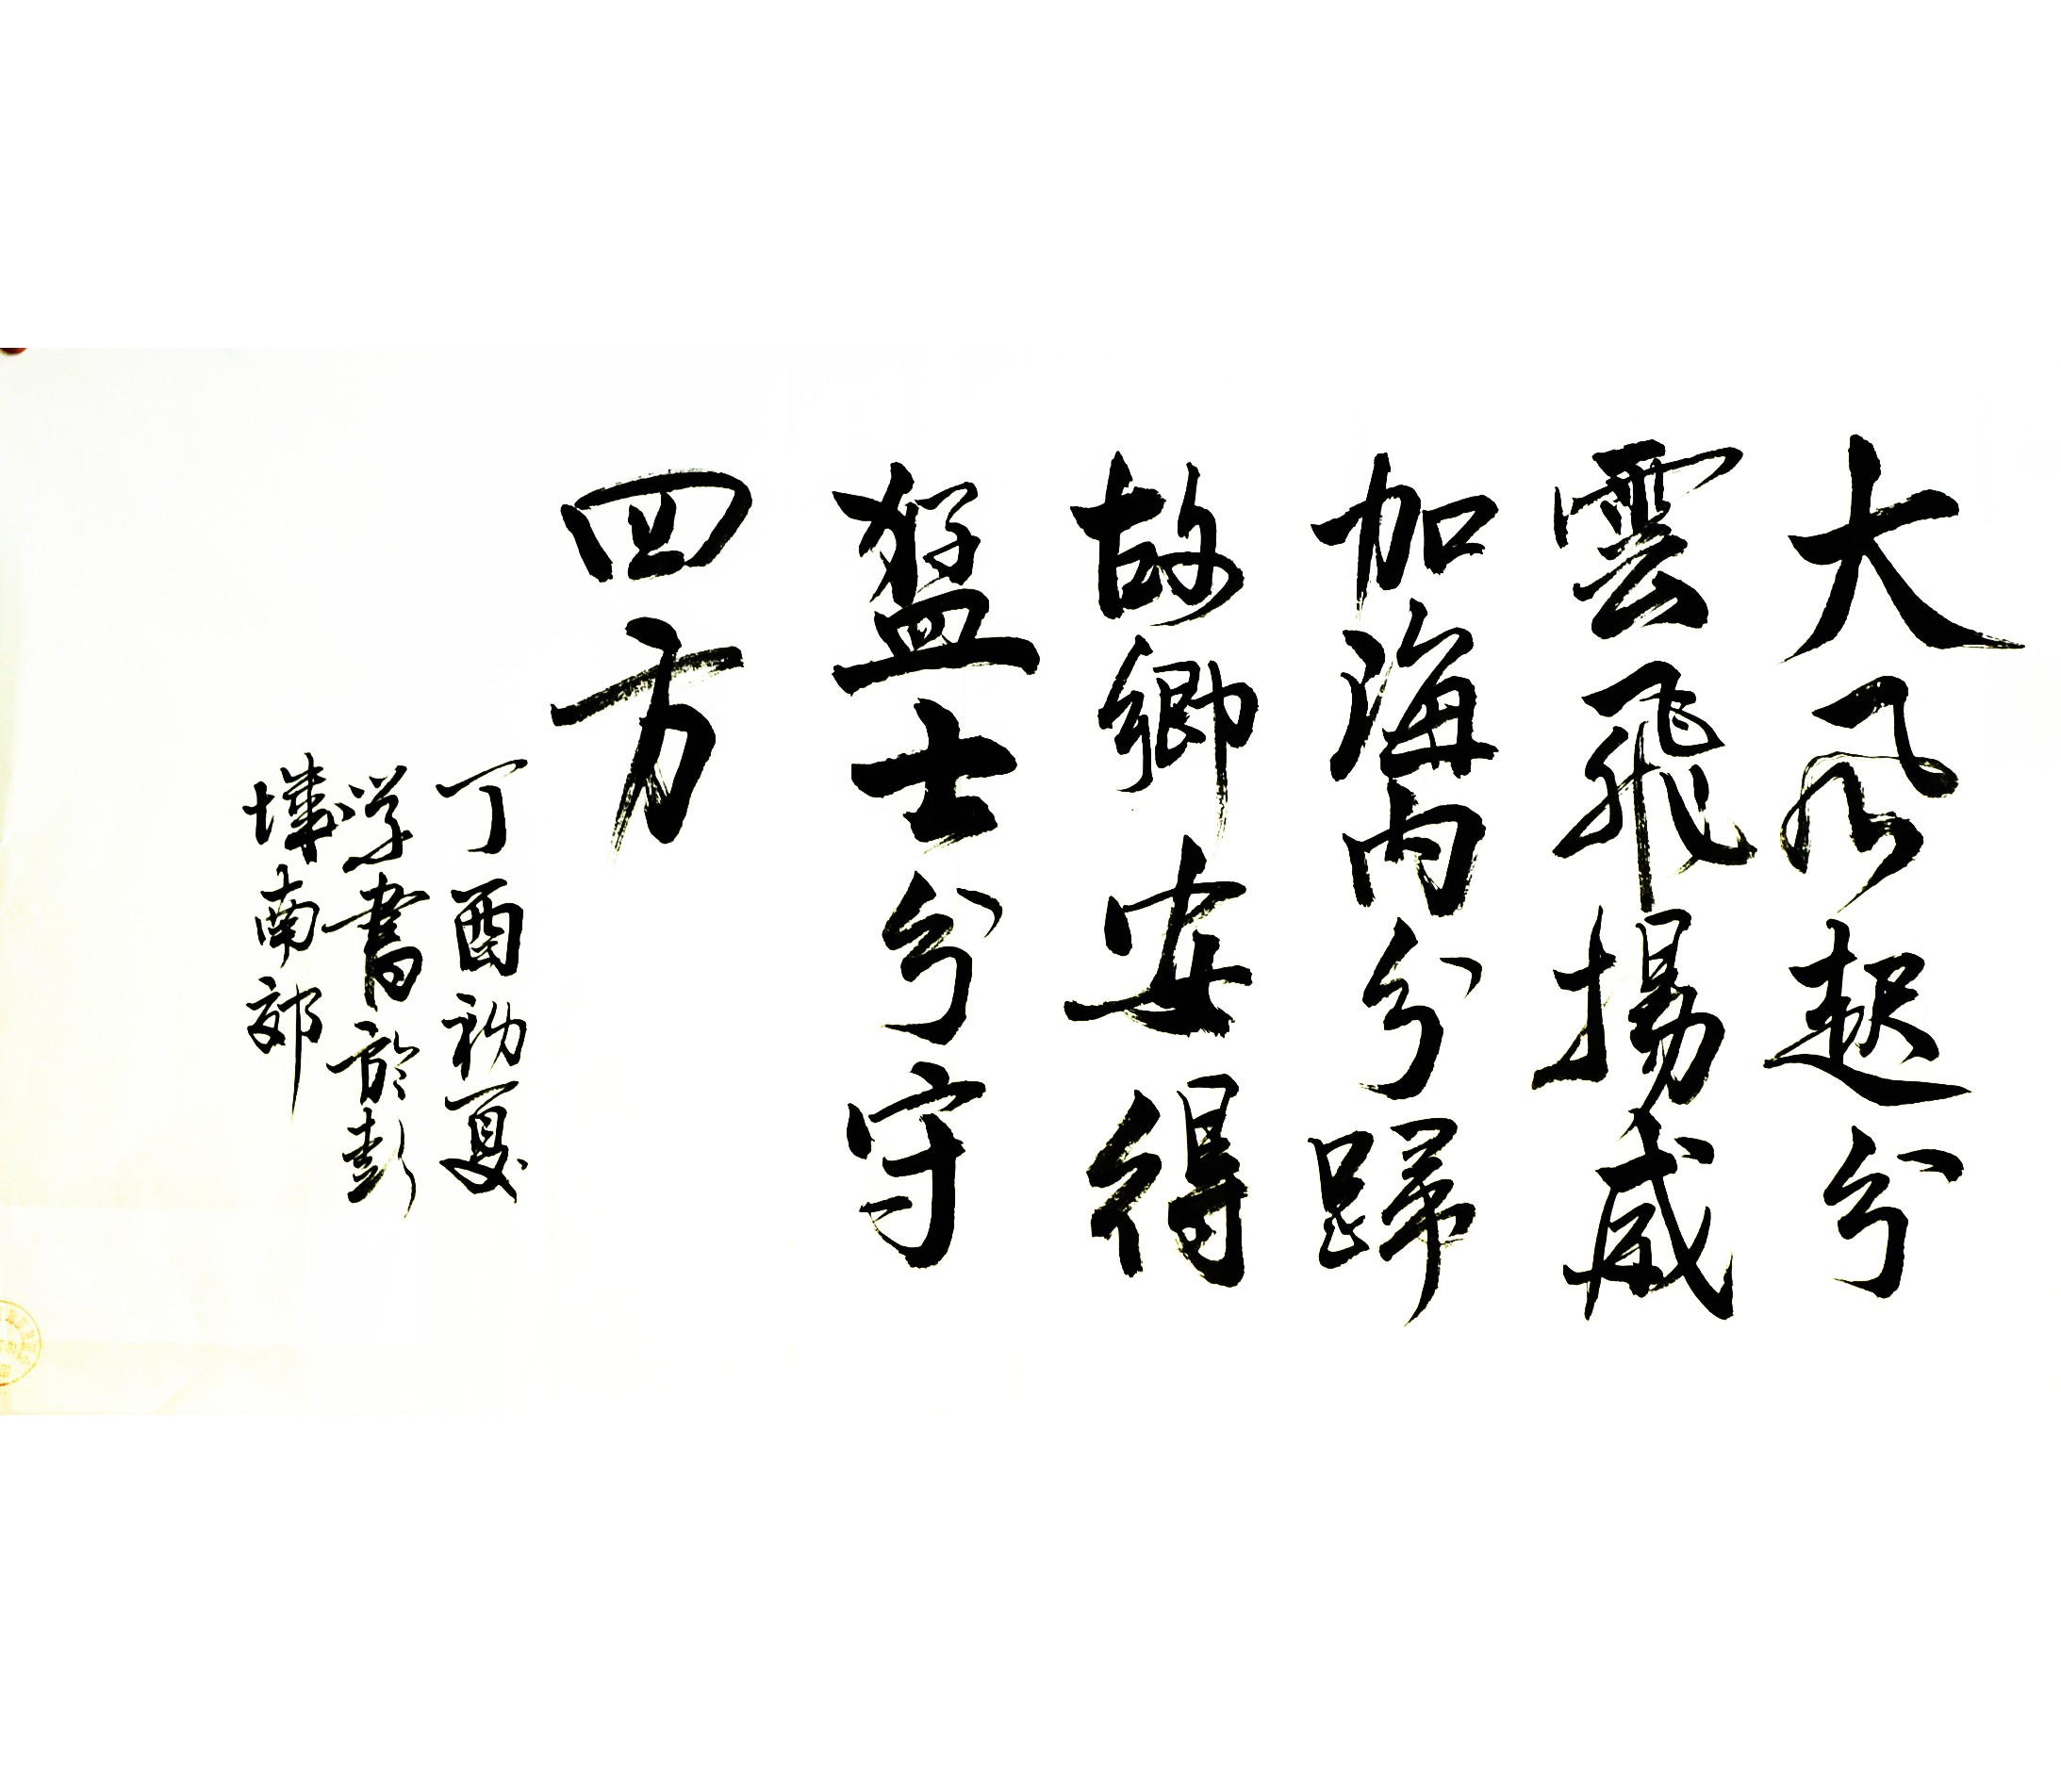 大風起兮
雲飛揚威
加海内兮歸
故鄉安得
猛士兮守
四方
丁酉初夏
学書於彭
城南郊